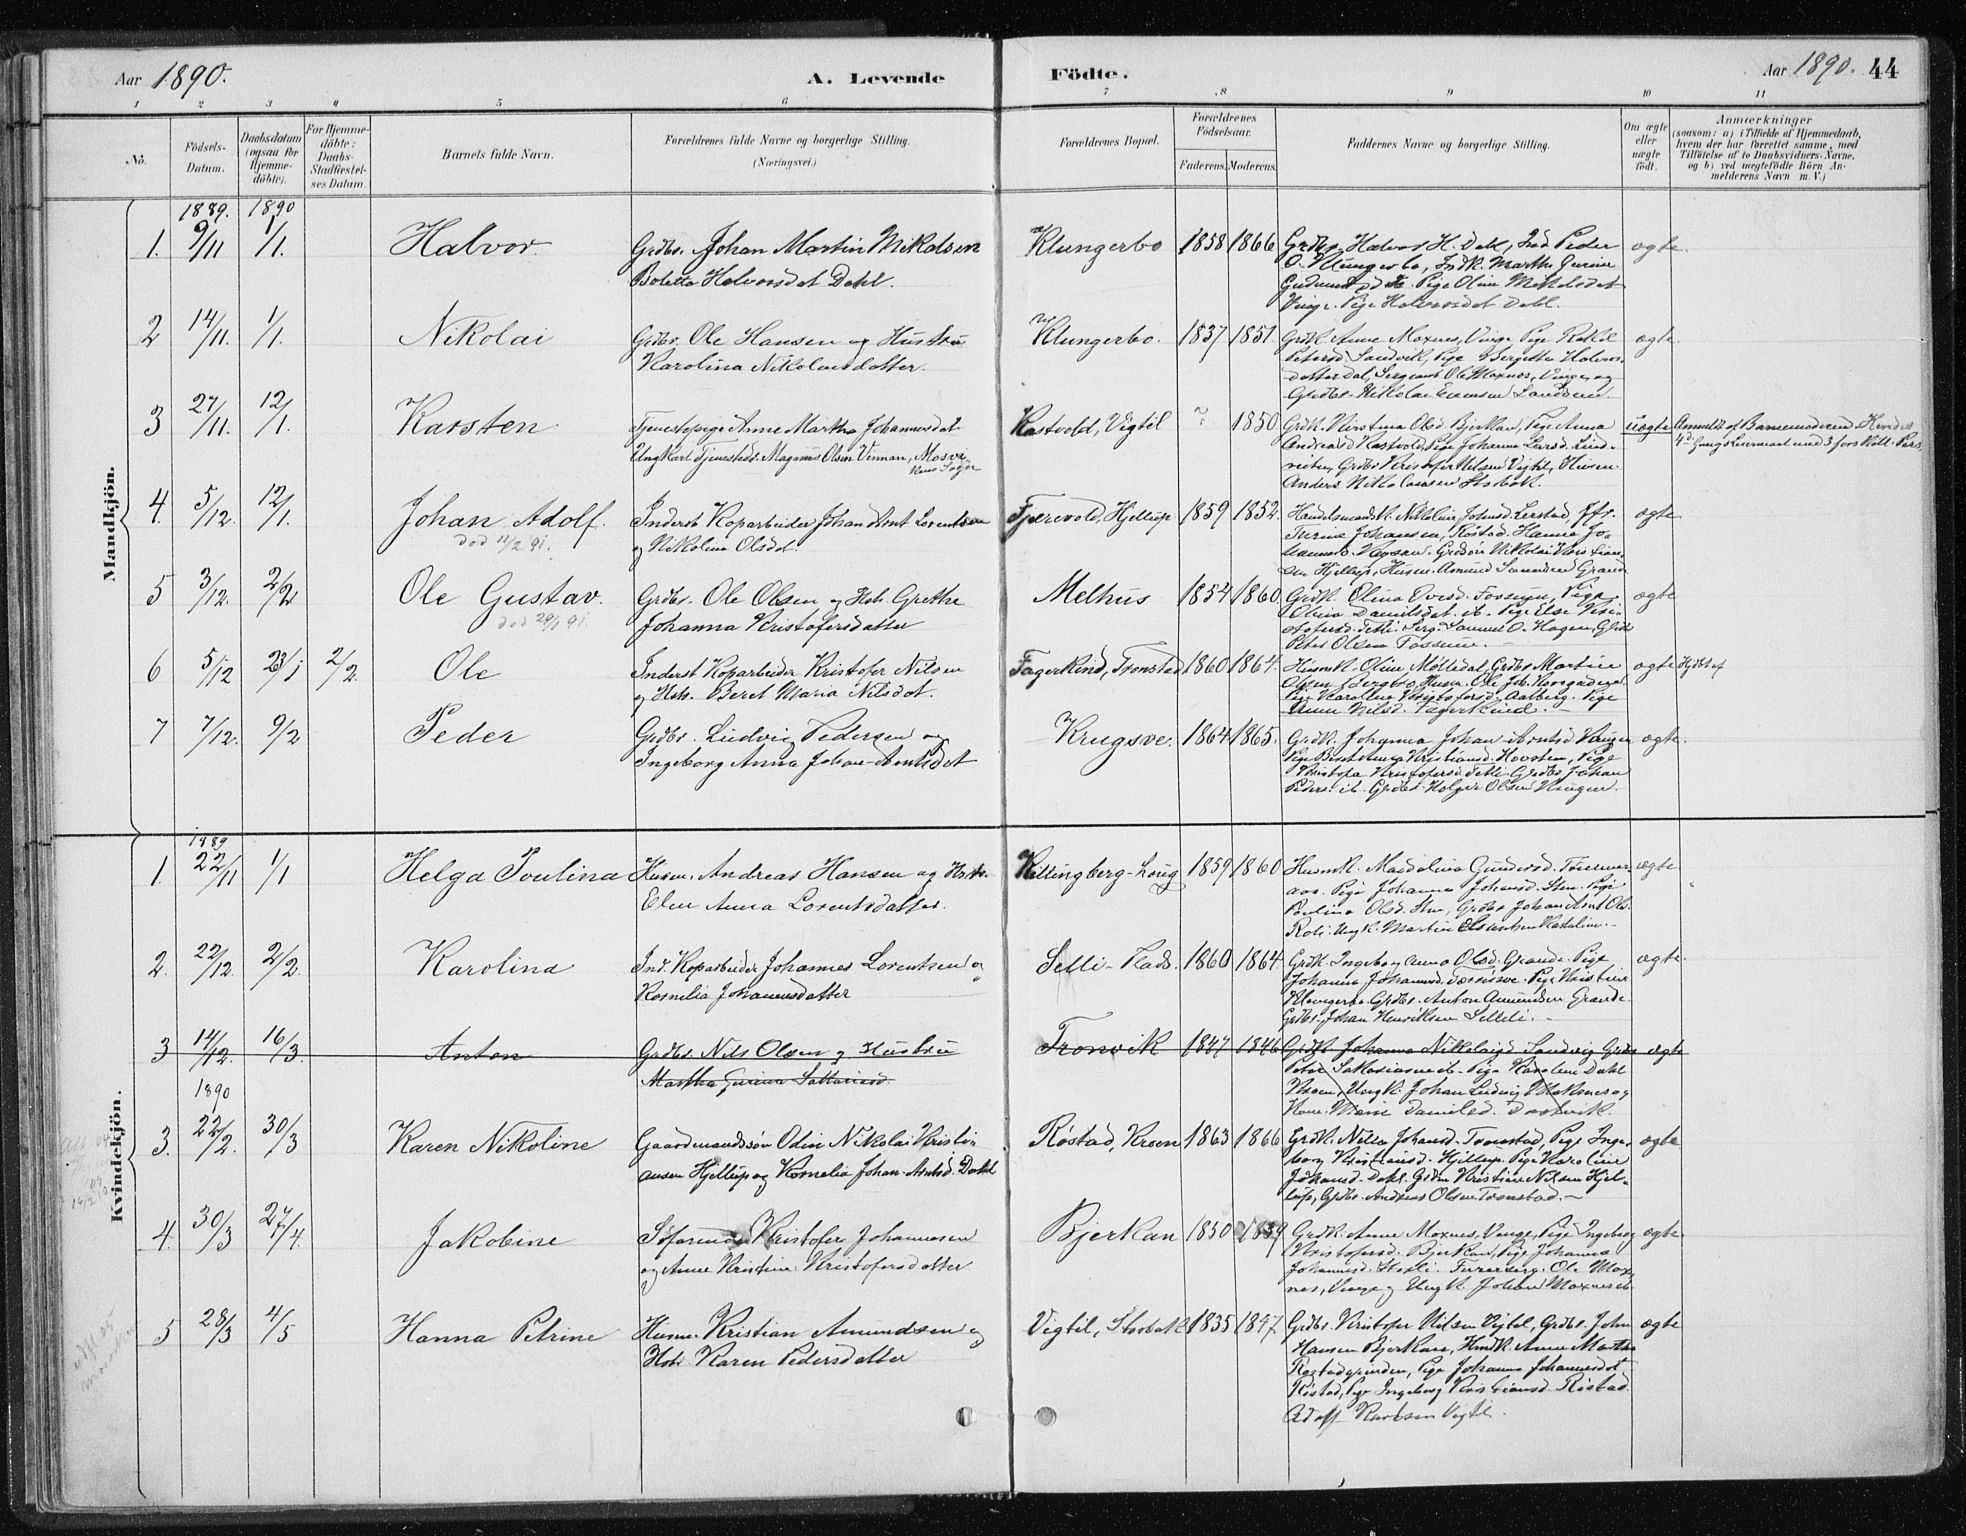 Aar 1890.
A. Levende
Födte.
Aar 1890. 44
1 2 3 4 5 6 7 8 9 10 11
No.
Födsels-
Datum.
Daabsdatum
(ogsaa for
Hjemme-
döbte).
For Hjemme-
döbte:
Daabs-
Stadfæstel-
ses Datum.
Barnets fulde Navn.
Forældrenes fulde Navne og borgerlige Stilling.
(Næringsvei.)
Forældrenes Bopæl.
Forældrenes
Födselsaar.
Faderens. Moderens.
Faddernes Navne og borgerlige Stilling.
Om ægte
eller
uægte
födt.
Anmærkninger
(saasom: a) i Tilfælde af Hjemmedaab,
hvem der har forrettet samme, med
Tilföielse af to Daabsvidners Navne,
og b) ved uægtefödte Börn An-
melderens Navn m. V.)
Mandkjön.
1889. 1890
1. 9/11 1/1. Halvor
Grdbr. Johan Martin Mikalsen
Boletta Halvorsdat Dahl.
Klungerbo 1858 1866
Grdbr. Halvor H. Dahl, Ind. Peder
O. Klungerbo, Indk. Martha Gurine
Pige Oline Mikalsdat
Vinge. Pige Halvorsdat Dahl.
ægte.
2 14/11. 1/1. Nikolai
Grdbr. Ole Hansen og Hustru
Karolina Nikolaisdatter.
Klungerbo. 1837 1851
Grdk. Anne Moxnes, Vinge, Pige
Petersd. Sandvik, Pige Bergitta Halvors-
datter Dal, Sergeant Ole Moxnes, Vinge og
Grdbr. Nikolai Evensen Sandvik.
ægte
3 27/11. 12/1. Karsten
Tjenestepige Anne Martha Johannesdat
Ungkarl Tjenestedr. Magnus Olsen Venman, Mosvi
Kastvold, Vigtil ? 1850
Grdk. Kirstina Olsd. Bjerkan, Pige Anna
Andreasd. Kastvold, Pige Johanna Larsd.
Grdbr. Kristofer Nilsen Vigtil, Husm.
Anders Nikolaisen Stobak.
uægte
Anmeldt af Barnemoderen. Hendes
4de Gangs Leiermaal med 3 forskjell. Pers.
4. 5/12. 12/1. Johan Adolf.
död 11/2 91.
Inderst Koparbeider Johan Arnt Lorentsen
og Nikolina Olsdt.
Fjærevold, Hjellup 1859 1852.
Handelsmandk. Nikoline Johnsd. Lerstad,
Turine Johansen, Röstad. Hanna Jo-
Nikolai Kristian-
sen Hjellup, Husm. Amund Grande
ægte
5 3/12. 2/2 Ole Gustav.
Grdbr. Ole Olsen og Hst. Grethe
Johanna Kristofersdatter
Melhus 1854 1860.
Grdk. Elina Fossum, Pige
Olina Danielsdat. ib. Pige Else Kri-
stofersd. Tetli. Serg. Samuel O. Hagen, Grdb
Peter Olsen Fossum.
ægte
6 5/12 23/1 2/2. Ole
Inderst Koparbeider Kristofer Nilsen
og Hst. Beret Maria Nilsdat.
Fagerkind, Tronstad 1860 1864.
Husmk. Oline Mølledal, Grdbr. Martin
Olsen Bergsve, Husm. Ole Joh.
Pige Karoline Kristofersd. Aalberg. Pige
Anne Nilsd. Fagerkind.
ægte
7 7/12. 9/2 Peder
Grdbr. Ludvig Pedersen og
Ingeborg Anna Johan-Arntsdat
Krugsve. 1864 1865.
Grdk. Johanna Johan-Arntsd Haugen
Pige Beret Anna Kristiansd. Hovsten, Pige
Kristofersd. Tetli. Grdbr. Johan
Peders. ib. Grdbr. Holger Olsen Haugen.
ægte.
Kvindekjön.
1889
1. 22/11 1/1 Helga Poulina
Husm. Andreas Hansen og Hst.
Elen Anna Lorentsdatter.
Killingberg-Loug 1859 1860
Husmk. Magdalina Gundersd.
aas. Pige Johanna Johansd. Sten. Pige
Paulina Olsd. Sten, Grdbr. Johan Arnt Ols.
Roli. Ungk. Martin
ægte
2. 22/12. 2/2. Karolina
Ind. Koparbeider Johannes Lorentsen og
Kornelia Johannesdatter
Selli-Plads. 1860 1864.
Grdk. Ingeborg Anna Olsd. Grande. Pige
Johanna Johannesd. Pige Kristine
Klungerbo. Grdbr. Anton Amundsen Grande.
Grdbr. Johan Henriksen Selleli.
ægte.
3 14/12. 16/3 Anton
Grdbr. Nils Olsen og Hustru
Martha Gurine Sakkariasd.
Tronvik 1847 1846
Grdk. Johanna Nikolaisd Sandvig Grdbr.
Peter Sakariassen ib. Pige Karoline Dahl
Ungk. Johan Ludvig
Danielsd.
ægte
1890
3. 22/2. 30/3 Karen Nikoline
Gaardmandssøn Odin Nikolai Kristi-
ansen Hjellup og Kornelia Johan-Arntsd. Dahl
Röstad, Kroen 1863 1866
Grdk. Nella Johansd. Tronstad, Pige Inge-
borg Kristiansd. Hjellup. Pige Karoline
Johansd. Dahl. Grdm Kristian Nilsen Hjel-
lup, Grdbr. Andreas Olsen Tronstad.
ægte
4. 30/3 27/4. Jakobine
Søfarende Kristofer Johannesen
og Anne Kristine Kristofersdatter
Bjerkan 1850 1859
Grdk. Anne Moxnes, Vinge, Pige Ingeborg
Kristofersd. Bjerkan, Pige Johanna
Johannesd. Ole Mox-
nes, Vinge og Ungk. Johan Moxnes ib.
ægte.
5 28/3 4/5 Hanna Petrine
Husm. Kristian Amundsen og
Hst. Karen Pedersdatter
Vigtil, Stobak 1835 1847
Grdbr. Kristofer Nilsen Vigtil, Grdbr. John
Hansen Bjerkan, Hmdk. Anne Martha
Röstadgrinden, Pige Johanna Johannesdat
Röstad, Pige Ingeborg Kristiansd. Röstad.
Adolf Karlsen Vigtil.
ægte